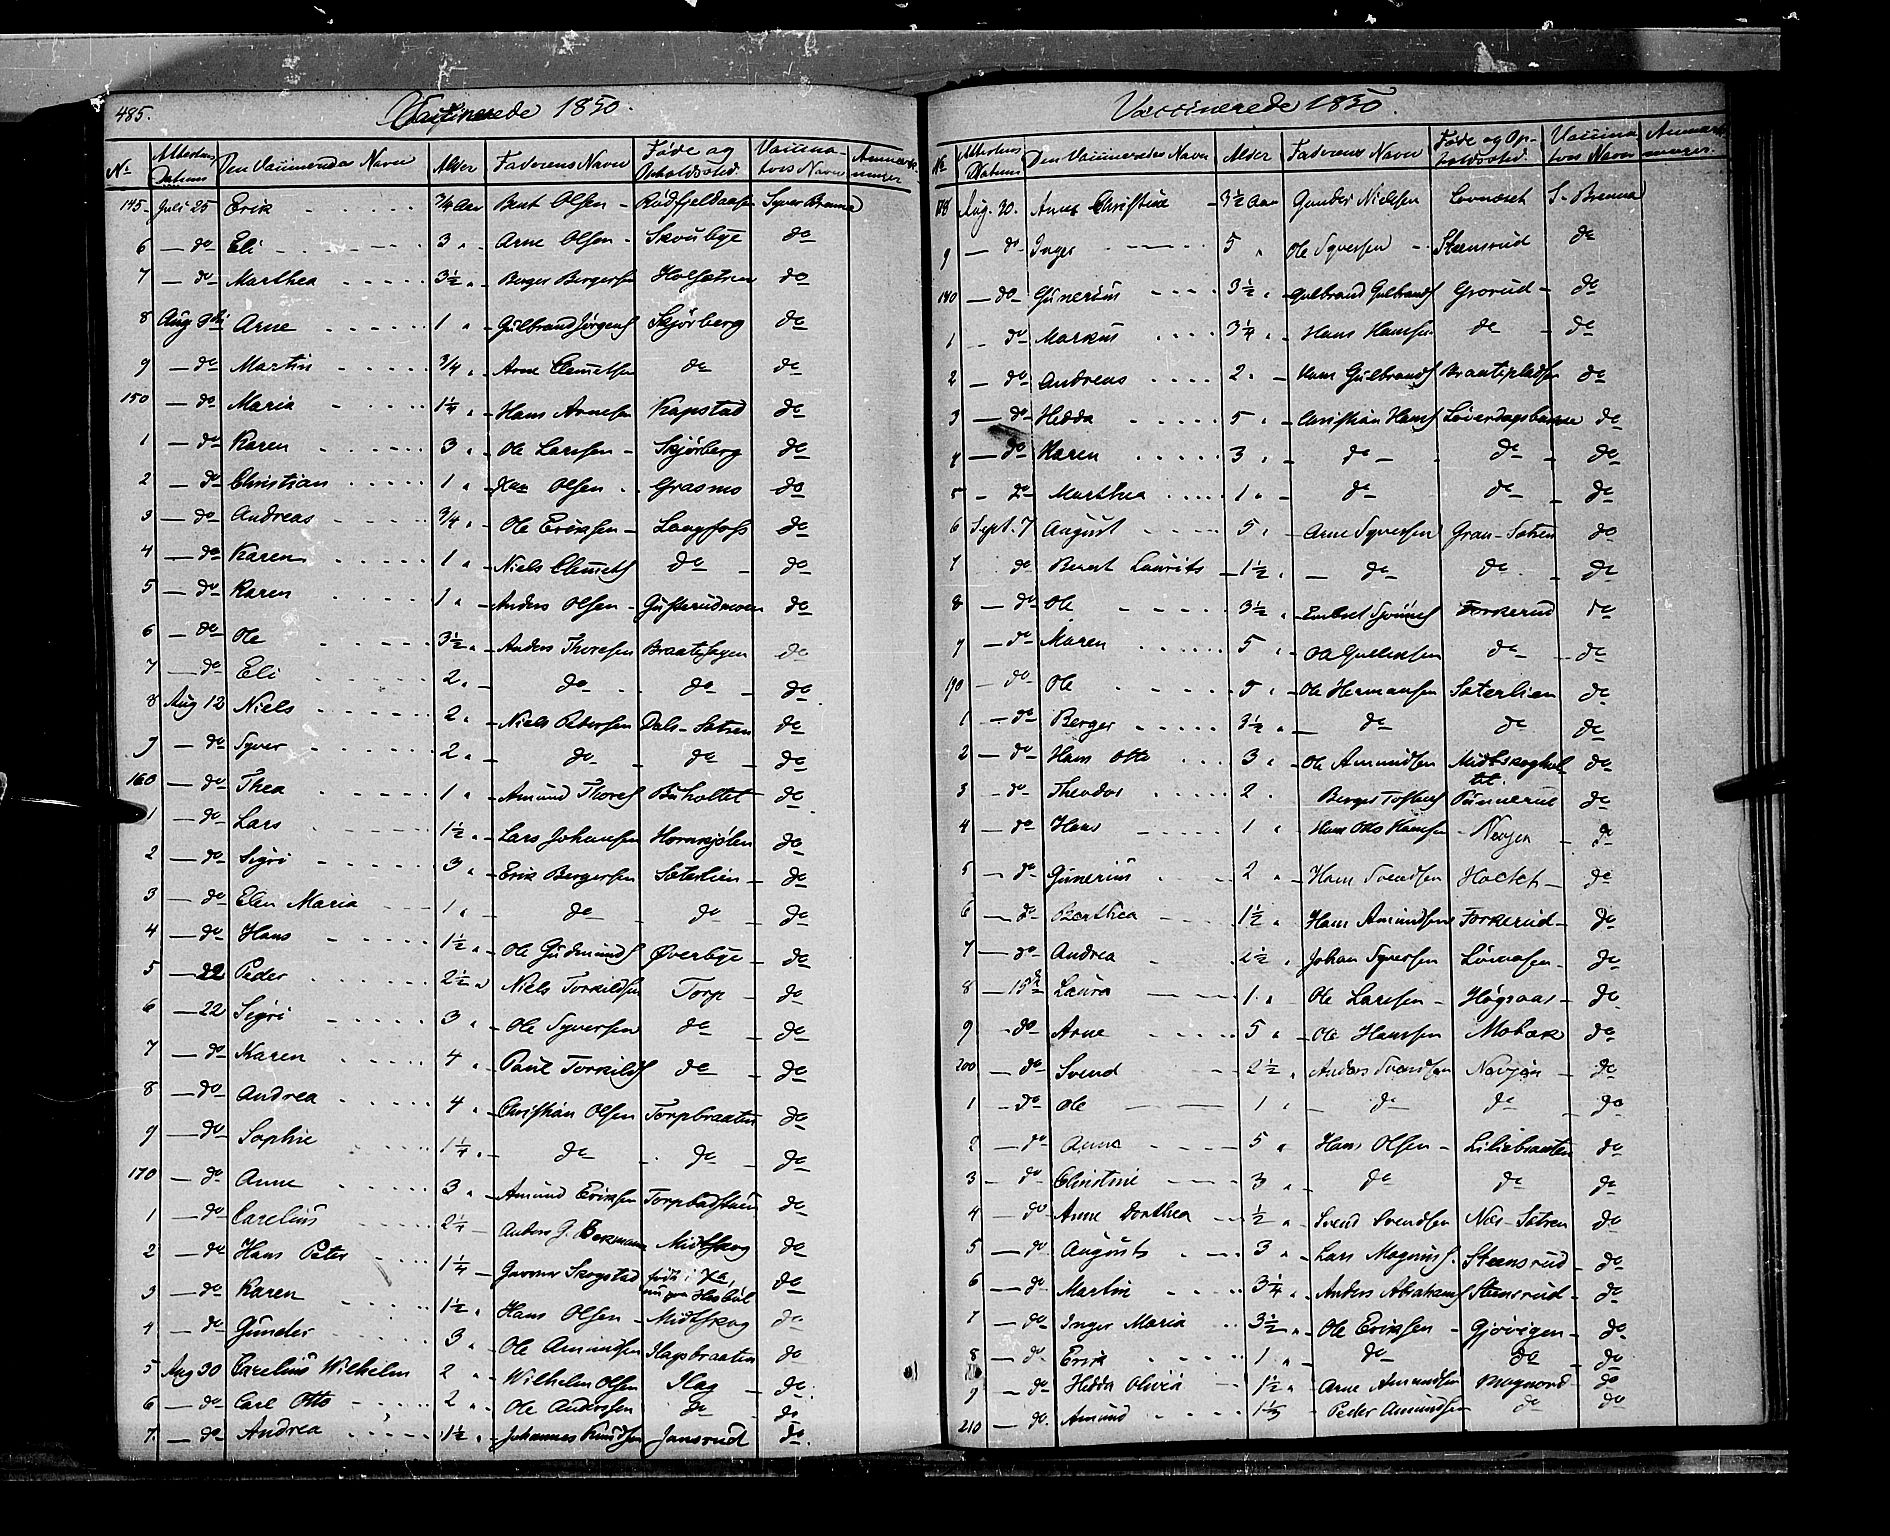 485. Vaccinerede 1850.
No Attestens Datum Den Vaccinerede Navn Alder Faderens Navn Føde og Opholdssted. Vaccinators Navn Anmærkninger
145. Juli 25 Erik 3/4 Aar Bent Olsen Rödfjeldaasen Syver Brenna
6 do Eli 3 " Arne Olsen Skoubye do
7 do Marthea 3½ " Berger Bergersen Holsætren do
8 Aug 9de Arne 1 " Gulbrand Jørgens Skjørberg do
9 do Martin 3/4 " Arne Clemetsen do do
150 do Maria 1¼ " Hans Arnesen Kapstad do
1 do Karen 3 " Ole Larssen Skjørberg do
2 do Christian 1 " Olsen Grasmo do
3 do Andreas 3/4 " Ole Eriksen Langfoss do
4 do Karen 1 " Niels Clemets do do
5 do Karen 1 " Anders Olsen do
6 do Ole 3½ " Anders Thoresen Braatehagen do
7 do Eli 2 " do do do
8 Aug 12 Niels 2 " Niels Petersen Dals-Sætren do
9 do Syver 2 " do do do
160 do Thea 1 " Amund Thores Buholtet do
1 do Lars 1½ " Lars Johansen Hornkjølen do
2 do Sigri 3 " Erik Bergersen Sæterlien do
3 do Elen Maria 1 " do do do
4 do Hans 1½ " Ole Gudmunds Øverbye do
5 22 Peder 2½ " Niels Torkildsen Torp do
6 22 Sigri 3 " Ole Syversen do do
7 do Karen 4 " Paul Torkilds do do
8 do Andrea 4 " Christian Olsen Torpbraaten do
9 do Sophie 1¼ " do do do
170 do Anne 3 " Amund Eriksen Torpbadstuen do
1 do Carelius 2¼ Anders G. Bermann Midtskog do
2 do Hans Peter 1¼ Gunnar Skogstad født i do
3 do Karen 1½ " Hans Olsen Midtskog do
4 do Gunder 3 " Ole Amundsen Slagsbraaten do
5 Aug 30 Carelius Wilhelm 2 " Wilhelm Olsen Slag do
6 do Carl Otto 2 " Ole Anderssen do do
7. do Andrea 1½ " Johannes Knudsen Jansrud do.
Vaccinerede 1850.
No Attestens Datum Den Vaccineredes Navn Alder Faderens Navn Føde og Opholdssted. Vaccinators Navn Anmærkninger.
178 Aug. 30. Anne Christine 3½ Aar Gunder Nielsen Lovnæset S. Brenna
9 do Inger 5 " Ole Syversen Steensrud do
180 do Gunerius 3½ " Gulbrand Gulbrands Grorud do
1 do Markus 3¼ " Hans Hansen do do
2 do Andreas 2 " Hans Gulbrands Braatepladsen do
3 do Hedda 5 " Christian Hans Løverdagsbakken do
4 do Karen 3 " do do do
5 do Marthea 1 " do do do
6 Sept. 7 August 5 " Arne Syversen Gran-Sætren do
7 do Bernt Laurits 1½ " do do do
8 do Ole 3½ " Embret Torkerud do
9 do Maren 5 " Ole Gullixsen do do
190 do Ole 5 " Ole Hermansen Sæterlien do
1 do Berger 3½ " do do do
2 do Hans Otto 3 " Ole Amundsen Midtskogholtet. do
3 do Theodor 2 " Berger Tostens Punnerud do
4 do Hans 1 " Hans Otto Hansen Navjen do
5 do Gunerius 2 " Hans Svendsen Holtet do
6 do Berthea 1½ " Hans Amundsen Torkerud do
7 do Andrea 2½ " Johan Syversen Lövaasen do
8 15de Laura 1 " Ole Larssen Høgsaas do
9 do Arne 5 " Ole Hanssen Mobæk do
200 do Svend 2½ " Anders Svendsen Navjen do
1 do Ole 1 " do do do
2 do Anne 5 " Hans Olsen Liliebraaten do
3 do Christine 3 " do do do
4 do Anne Dorthea ½ " Svend Svendsen Næs-Sætren do
5 do August 3 " Lars Magnus. Steensrud do
6 do Martin 3¼ " Anders Abrahams Steensrud do
7 do Inger Maria 3½ " Ole Eriksen Gjövigen do
8 do Erik 1 " do do do
9 do Hedda Olivia 1½ " Arne Amundsen Magnord do
210 do Amund 1½ Peder Amundsen do do